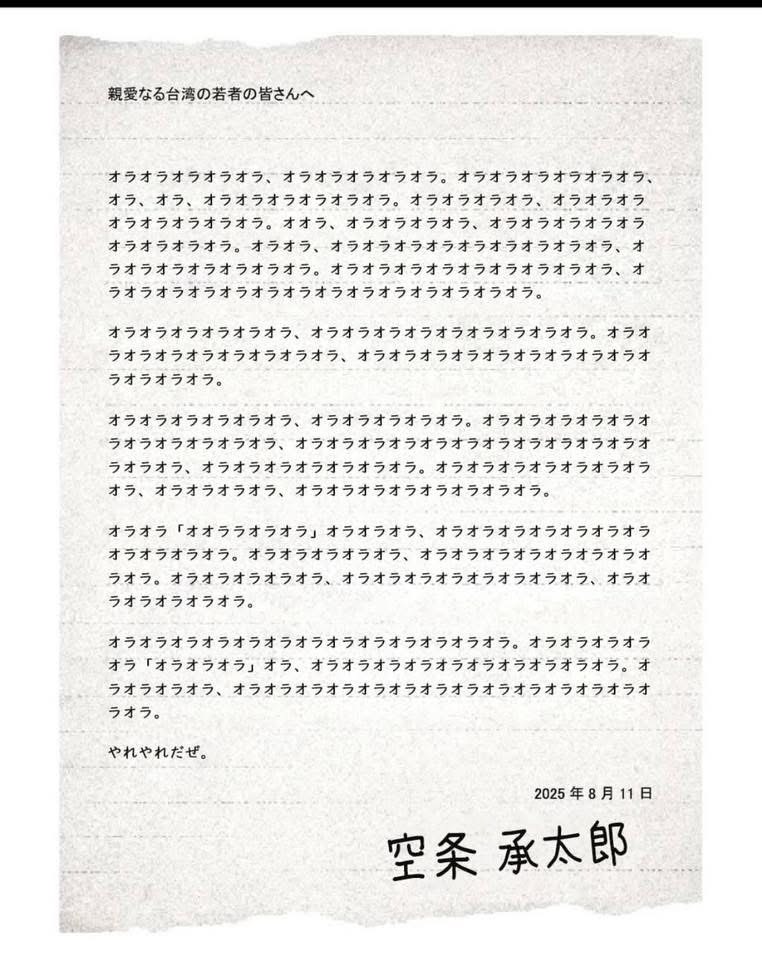 親愛なる台湾の若者の皆さんへ
オラオラオラオラオラ、オラオラオラオラオラ。オラオラオラオラオラオラ、
オラ、オラ、オラオラオラオラオラオラ。オラオラオラオラ、オラオラオラ
オラオラオラオラオラ。オオラ、オラオラオラオラ、オラオラオラオラオラ
オラオラオラオラ。オラオラ、オラオラオラオラオラオラオラオラオラ、オ
ラオラオラオラオラオラオラ。オラオラオラオラオラオラオラオラオラ、オ
ラオラオラオラオラオラオラオラオラオラオラオラオラオラ。
オラオラオラオラオラオラ、オラオラオラオラオラオラオラオラオラ。オラオ
ラオラオラオラオラオラオラオラ、オラオラオラオラオラオラオラオラオラオ
ラオラオラオラ。
オラオラオラオラオラオラ、オラオラオラオラオラ。オラオラオラオラオラオ
ラオラオラオラオラオラ、オラオラオラオラオラオラオラオラオラオラオラオ
ラオラオラ、オラオラオラオラオラオラオラ。オラオラオラオラオラオラオラ
オラ、オラオラオラオラ、オラオラオラオラオラオラオラオラ。
オラオラ「オオララオラオラ」オラオラオラ、オラオラオラオラオラオラオラ
オラオラオラオラ。オラオラオラオラオラ、オラオラオラオラオラオラオラオ
ラオラ。オラオラオラオラオラ、オラオラオラオラオラオラオラオラ、オラオ
ラオラオラオラオラ。
オラオラオラオラオラオラオラオラオラオラオラオラオラ。オラオラオラオラ
オラ「オラオラオラ」オラ、オラオラオラオラオラオラオラオラオラオラ。オ
ラオラオラオラ、オラオラオラオラオラオラオラオラオラオラオラオラオラオ
ラオラ。
やれやれだぜ。
2025 年 8 月 11 日
空条 承太郎